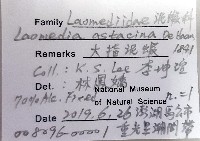 Family Laomediidae 泥蝦科
Laomedia astacina De Haan
Remarks 大指泥蝦 1841
Coll.: K. S. Lee 李坤瑄
Det.: 林 National Museum
70% Alc. Pres. of Natural Science n=1
Date 2019.6.26 澎湖馬公市
008096-00001 重光里潮間帶